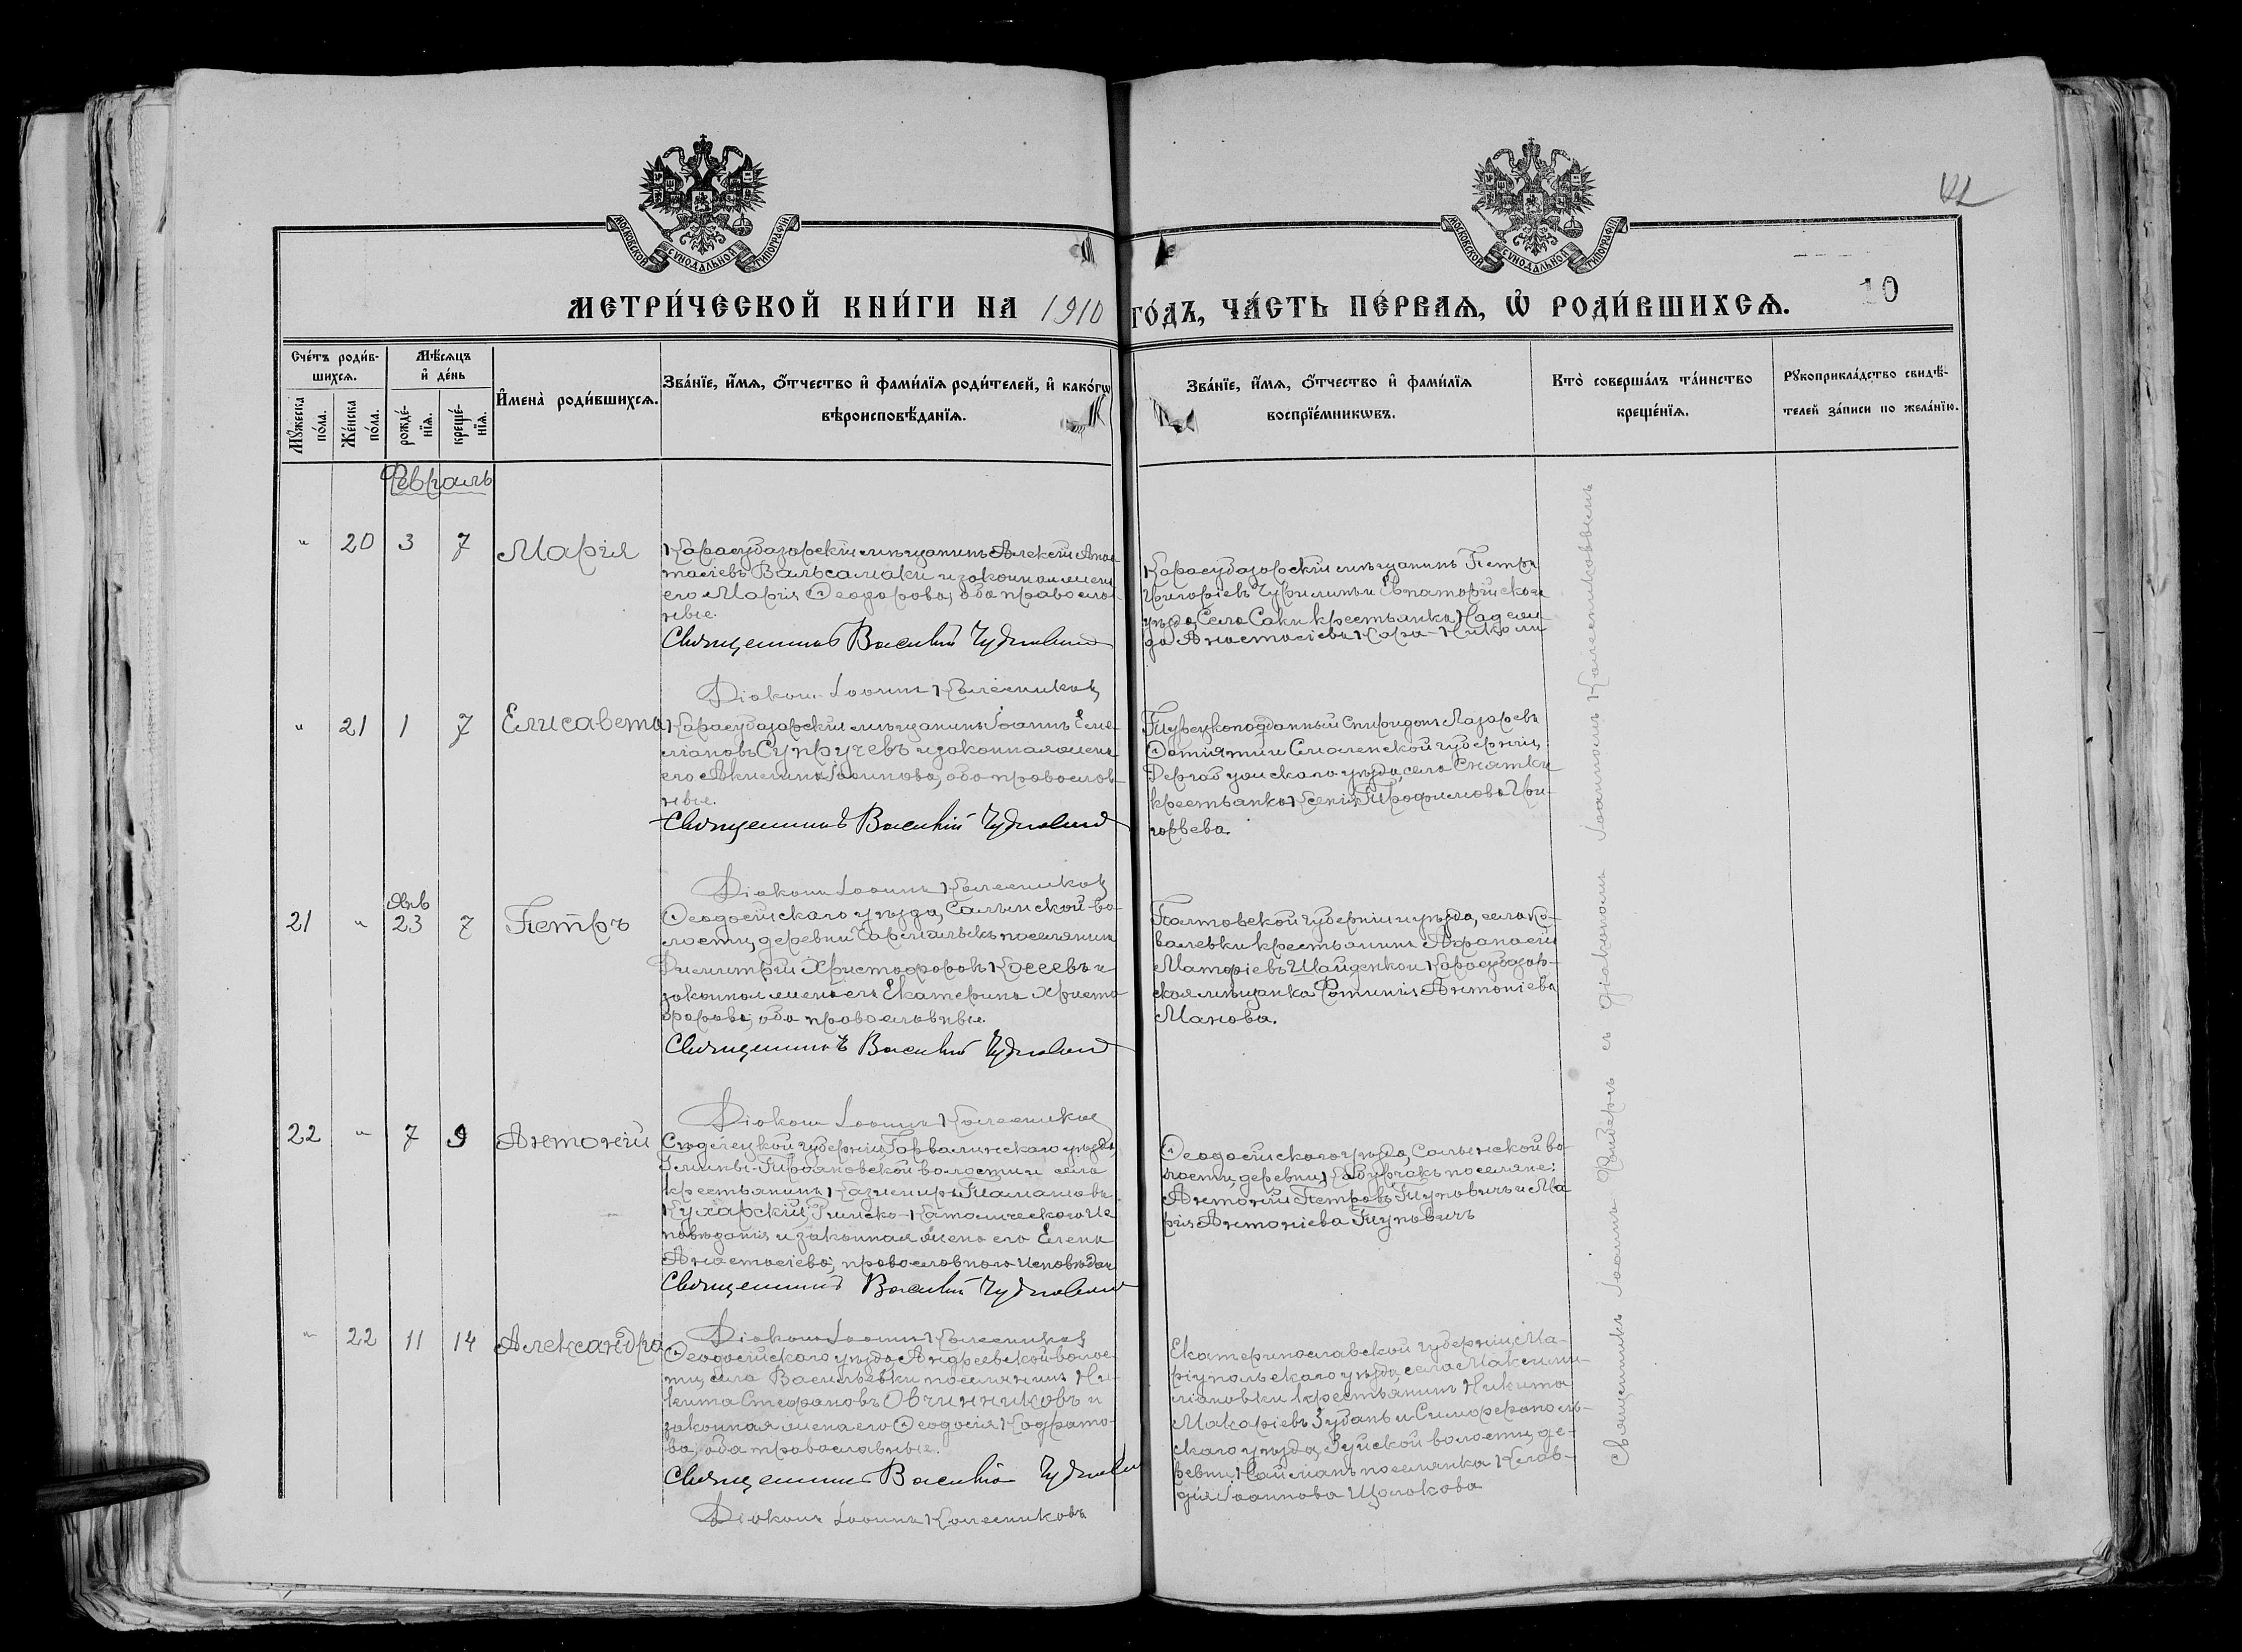 МОСКОВСКОЙ СѴНОДАЛЬНОЙ ТИПОГРАФІИ
МОСКОВСКОЙ СѴНОДАЛЬНОЙ ТИПОГРАФІИ
10
МЕТРИ́ЧЕСКОЙ КНИ́ГИ НА 1910 ГО́ДЪ, ЧА́СТЬ ПЕ́РВАѦ, Ѡ РОДИ́ВШИХСѦ.
Сче́тъ роди́в-
шихсѧ.
Мꙋ́жеска по́ла.
Же́нска по́ла.
Мѣ́сѧцъ и де́нь
рожде́-нїѧ.
креще́-нїѧ.
Имена̀ роди́вшихсѧ.
Зва́нїе, и́мѧ, о́тчество и фами́лїѧ роди́телей, и како́гѡ
вѣроисповѣ́данїѧ.
Зва́нїе, и́мѧ, о́тчество и фами́лїѧ
воспрїе́мникѡвъ.
Кто̀ соверша́лъ та́инство
креще́нїѧ.
Рꙋкоприкла́дство свидѣ́-
телей за́писи по жела́нїю.
Февраль
" 20 3 7 Марія
Карасубазарскій мѣщанинъ Алексѣй Анас
тасіевъ Вальсамаки и законная жена
его Марія Ѳеодорова, оба православ
ные.
Священникъ Василій Чудновскій
Діаконъ Іоаннъ Колесниковъ
Карасубазарскій мѣщанинъ Петръ
Григоріевъ и Евпаторійскаго
уѣзда, Села Саки крестьянка Надеж
да Анастасіева Кара-Николи
" 21 1 7 Елисавета
Карасубазарскій мѣщанинъ Іоаннъ Еме-
ліановъ Супручевъ и законная жена
его Акилина Іоаннова, оба православ-
ные.
Священникъ Василій Чудновскій
Діаконъ Іоаннъ Колесниковъ
Турецкоподданный Спиридонъ Лазаревъ
и Смоленской губерніи,
уѣзда, села
крестьянка Ксенія Трофимова Гри-
горьева.
21 " Янв 23 7 Петръ
Ѳеодосійскаго уѣзда, Салынской во-
лости, деревни поселянинъ
Димитрій Христофоровъ Косеевъ и
законная жена его Екатерина Христо
форова, оба православные.
Священникъ Василій Чудновскій
Діаконъ Іоаннъ Колесниковъ
Полтовской губерніи и уѣзда, села Ко-
валевки крестьянинъ Афанасій
Матфіевъ Шайденко и Карасубазар-
ская мѣщанка Фотинія Антоніева
Манова.
22 " 7 9 Антоній
Сѣдлецкой губерніи, Гарвалинскаго уѣзда
волости и села
крестьянинъ Казимиръ Тамашовъ
Кухарскій, Римско-Католическаго Ис
повѣданія и законная жена его Елена
Анастасіева, православнаго исповѣдан
Священникъ Василій Чудновскій
Діаконъ Іоаннъ Колесниковъ
Ѳеодосійскаго уѣзда, Салынской во-
лости, деревни, поселяне:
Антоній Петровъ Туповичъ и Ма
рія Антоніева Туповичъ
" 22 11 14 Александра
Ѳеодосійскаго уѣзда, Андреевской волос-
ти, села Васильевки поселянинъ Ни-
кита Стефановъ Овчинниковъ и
законная жена его Ѳеодосія Кодрато-
ва, оба православные.
Священникъ Василій Чудновскій
Діаконъ Іоаннъ Колесниковъ
Екатеринославской губерніи, Ма-
ріупольскаго уѣзда, села Максими-
ліановки крестьянинъ Никита
Макаріевъ Зубань и Симферополь-
скаго уѣзда, Зуйской волости, де-
ревни, Найманъ поселянка Клав-
дія Іоаннова Щолокова
Священникъ Іоаннъ съ діакономъ Іоанномъ Колесниковымъ